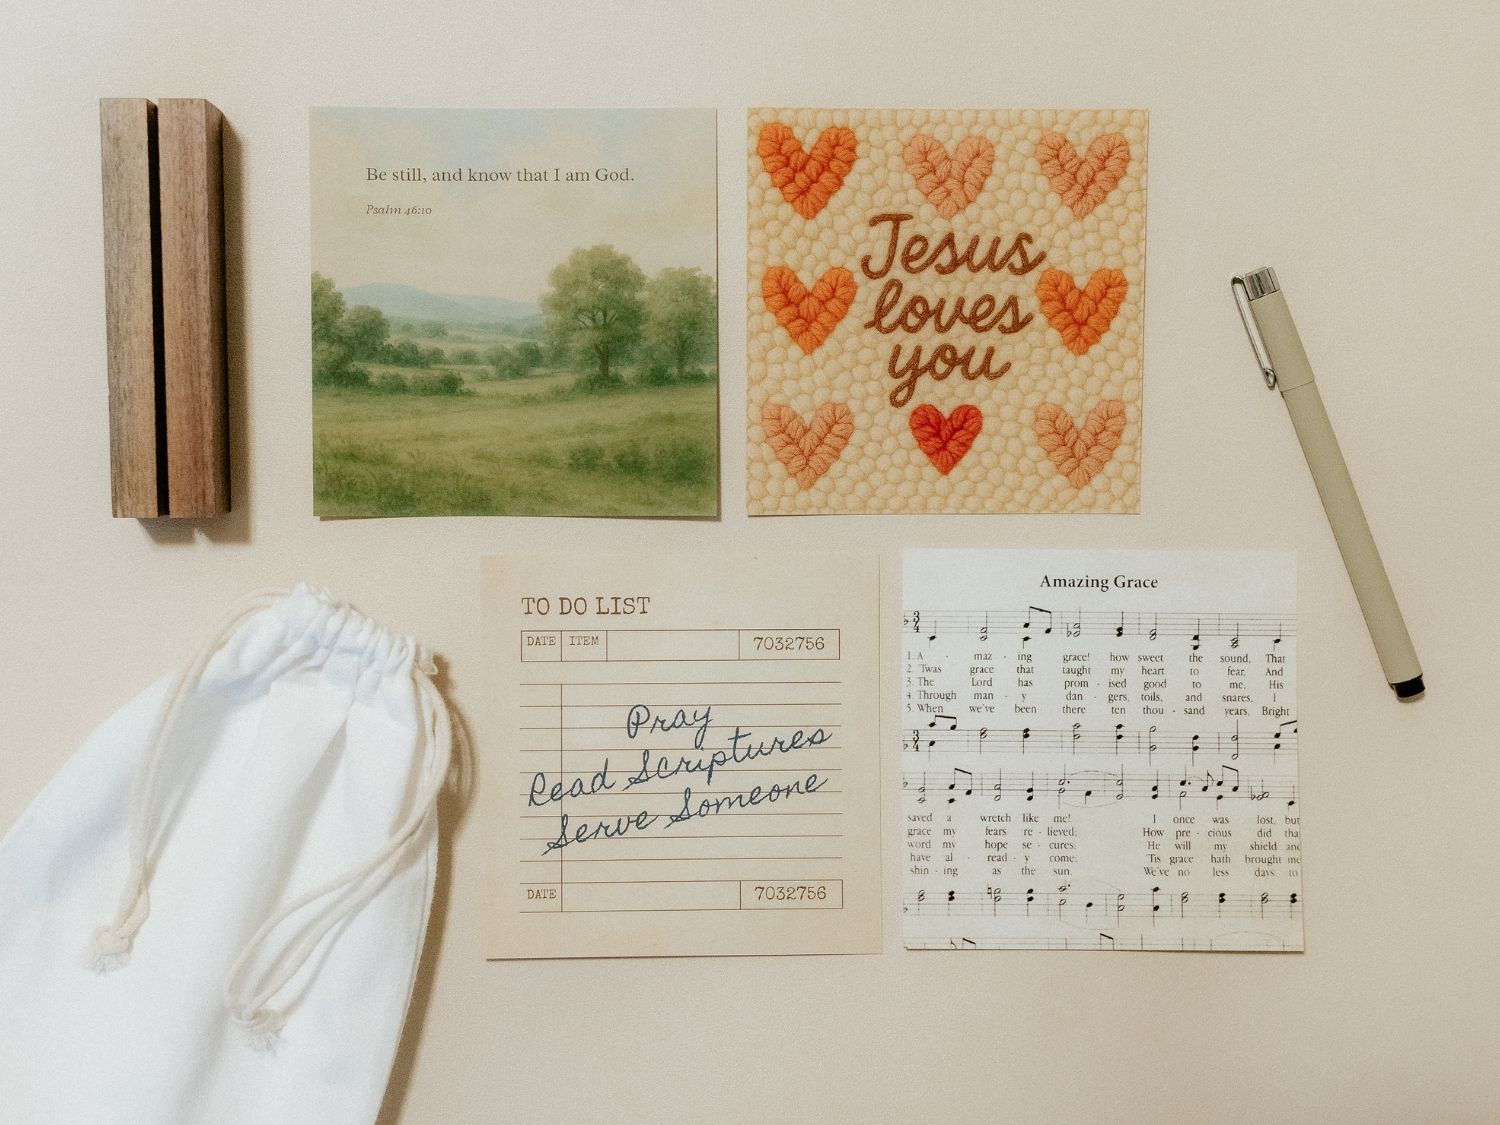 Be still, and know that I am God.
Psalm 46:10
Jesus
loves
you
TO DO LIST
DATE ITEM 7032756
Pray
Read Scriptures
Serve Someone
DATE 7032756
Amazing Grace
3/4
1. A - maz - ing grace! how sweet the sound, That
2. 'Twas grace that taught my heart to fear, And
3. The Lord has prom - ised good to me, His
4. Through man - y dan - gers, toils, and snares, I
5. When we've been there ten thou - sand years, Bright
3/4
saved a wretch like me! I once was lost, but
grace my fears re - lieved; How pre - cious did tha
word my hope se - cures; He will my shield and
have al - read - y come; 'Tis grace hath brought me
shin - ing as the sun, We've no less days to